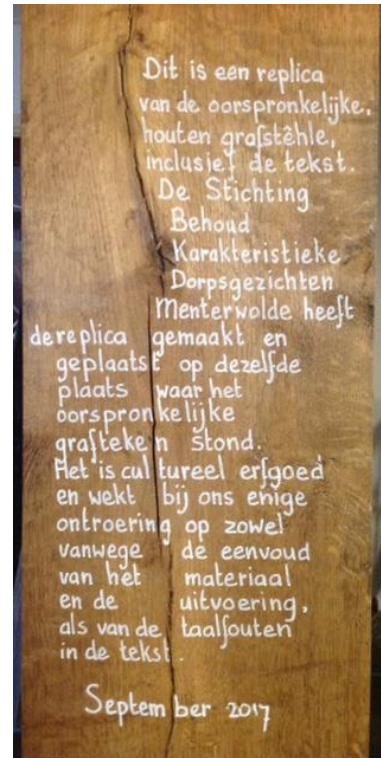 Dit is een replica
van de oorspronkelijke,
houten grafstêhle,
inclusief de tekst.
De Stichting
Behoud
Karakteristieke
Dorpsgezichten
Menterwolde heeft
de replica gemaakt en
geplaatst op dezelfde
plaats waar het
oorspronkelijke
grafteken stond.
Het is cultureel erfgoed
en wekt bij ons enige
ontroering op zowel
vanwege de eenvoud
van het materiaal
en de uitvoering,
als van de taalfouten
in de tekst.
September 2017